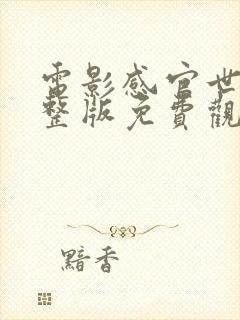 電影感官世
整版免費觀
黯香